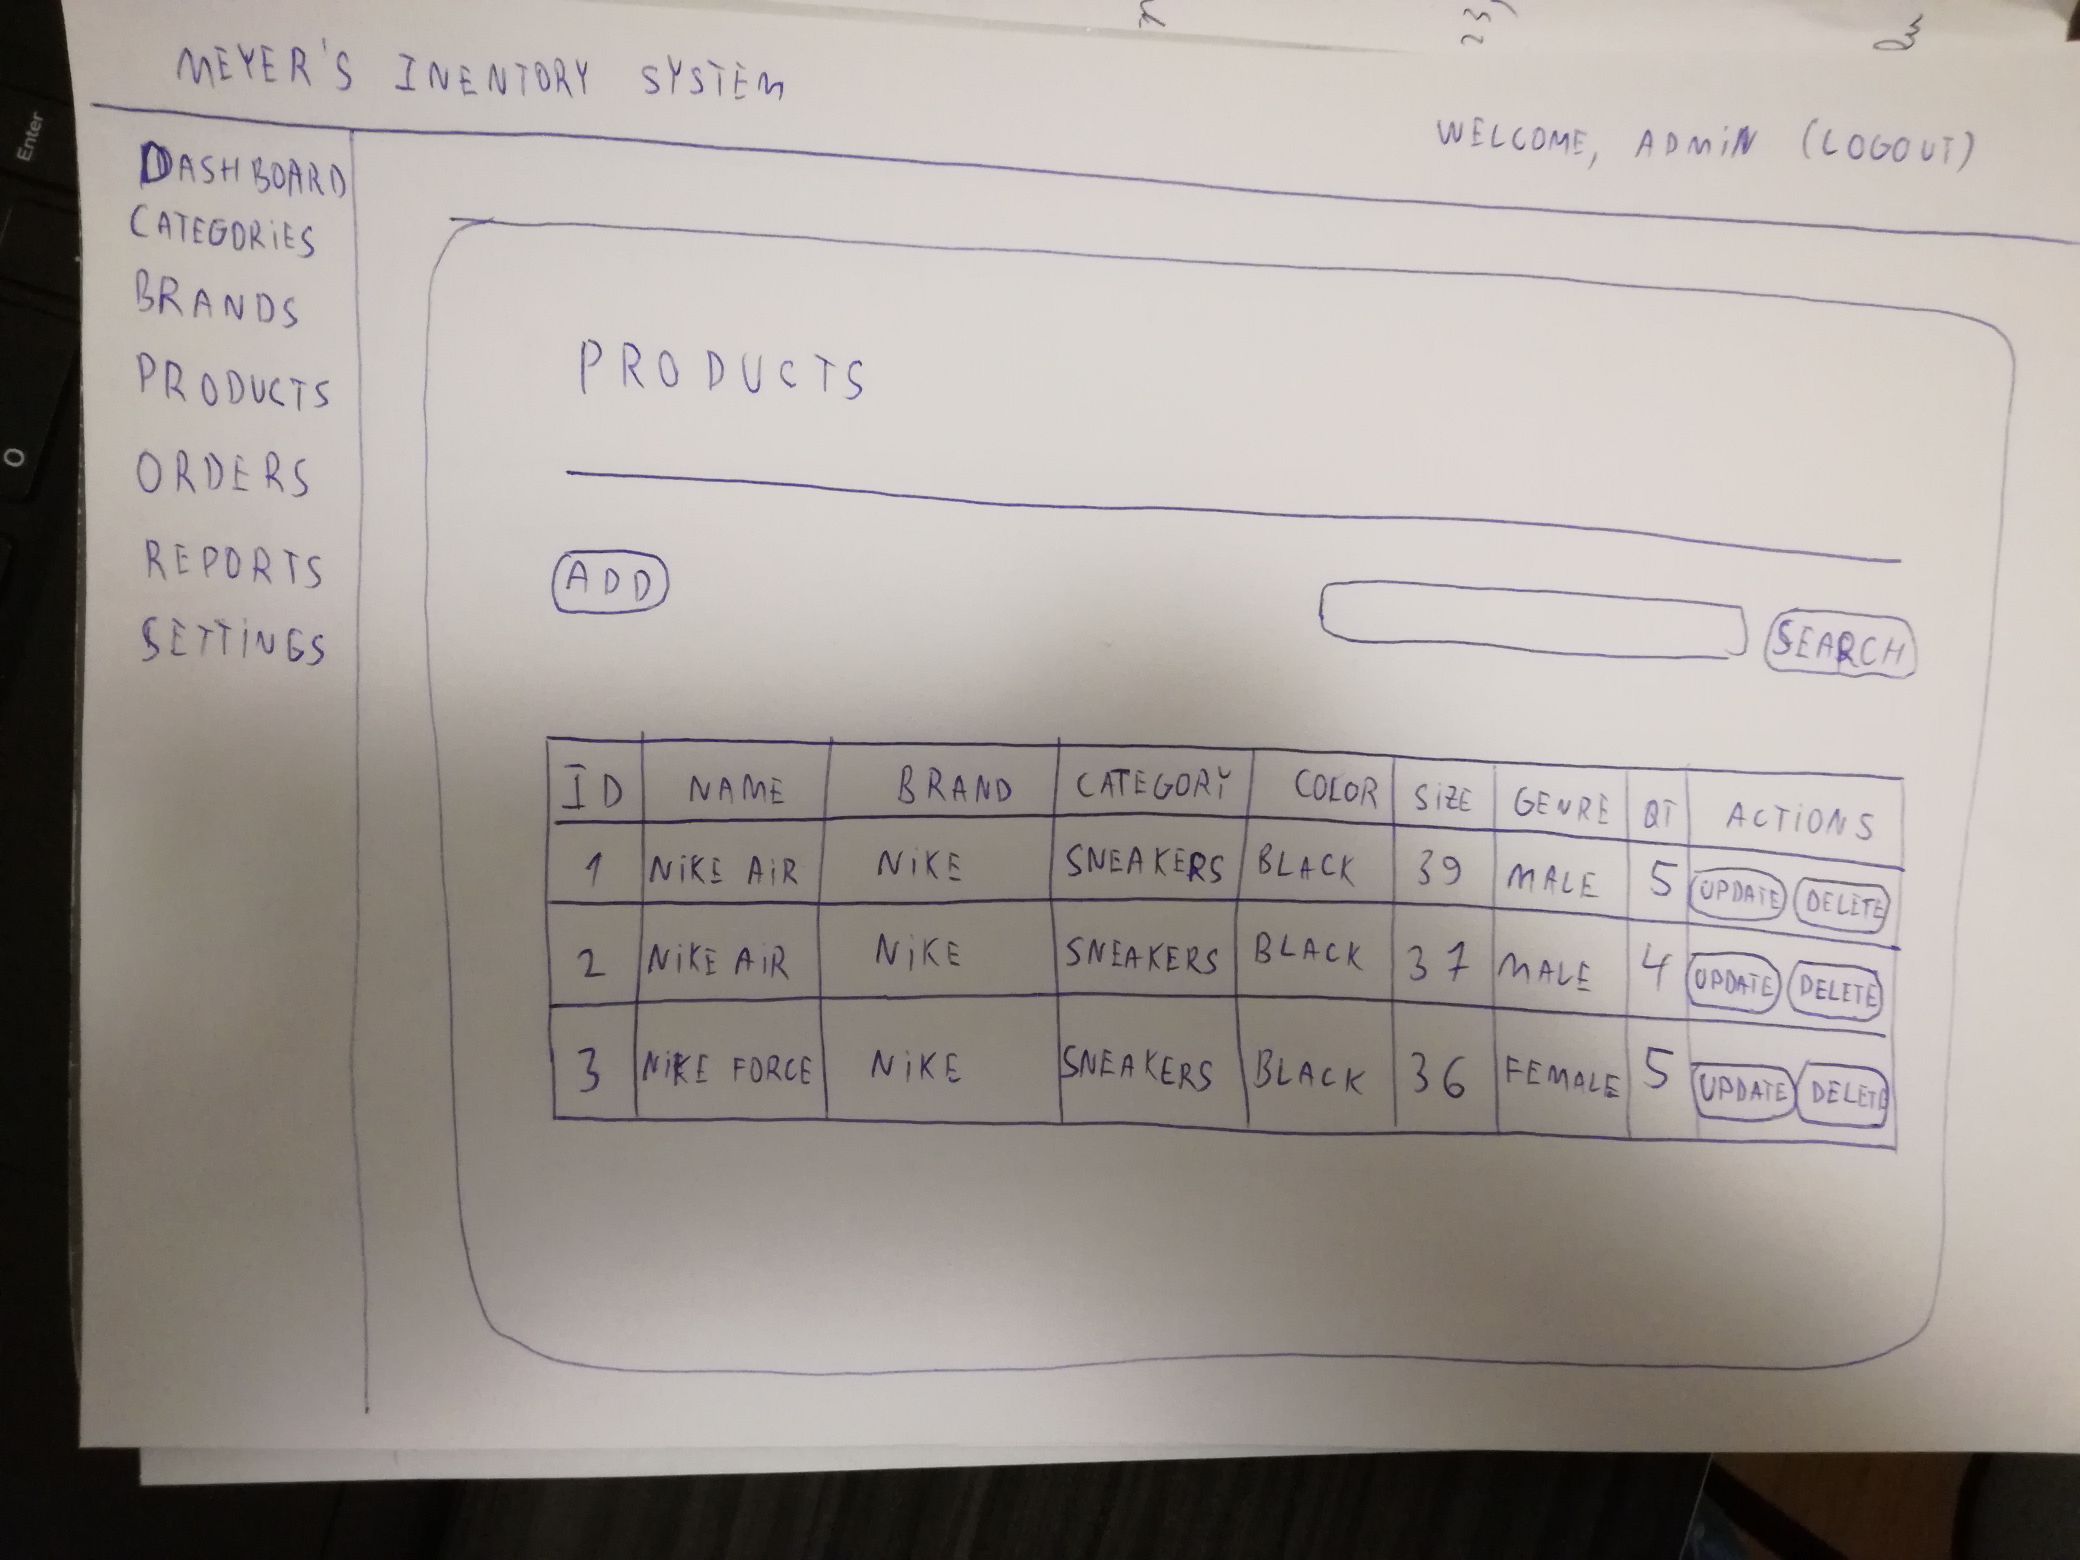 MEYER'S INENTORY SYSTEM
WELCOME, ADMIN (LOGOUT)
DASHBOARD
CATEGORIES
BRANDS
PRODUCTS
ORDERS
REPORTS
SETTINGS
PRODUCTS
ADD
SEARCH
ID NAME BRAND CATEGORY COLOR SIZE GENRE QT ACTIONS
1 NIKE AIR NIKE SNEAKERS BLACK 39 MALE 5 UPDATE DELETE
2 NIKE AIR NIKE SNEAKERS BLACK 37 MALE 4 UPDATE DELETE
3 NIKE FORCE NIKE SNEAKERS BLACK 36 FEMALE 5 UPDATE DELETE
Enter
O
23,